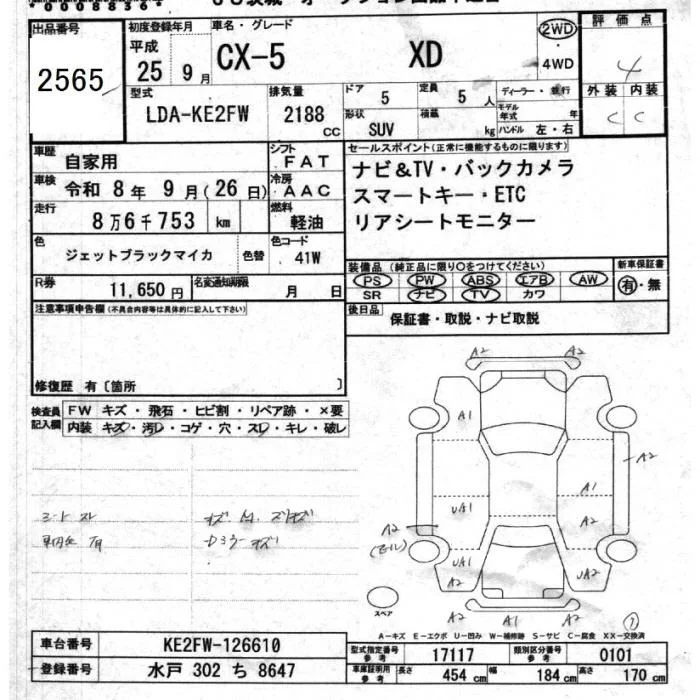 出品番号
2565
初度登録年月
平成
25 9 月
車名・グレード
CX-5 XD
2WD
・
4WD
評価点
4
外装 内装
C C
型式
LDA-KE2FW
排気量
2188
CC
ドア
5
形状
SUV
定員
5 人
積載
kg
ディーラー・並行
モデル年式 年
ハンドル 左・右
車歴 自家用
シフト FAT
車検 令和 8 年 9 月(26 日)
冷房 AAC
走行 8 万 6 千 753 km
燃料 軽油
色 ジェットブラックマイカ 色替
色コード 41W
R券 11,650 円
名変通知期限 月 日
セールスポイント(正常に機能するものに限ります)
ナビ&TV・バックカメラ
スマートキー・ETC
リアシートモニター
装備品(純正品に限り○をつけてください)
PS PW ABS エアB AW
SR ナビ TV カワ
新車保証書
有・無
後日品 保証書・取説・ナビ取説
注意事項申告欄(不具合内容等は具体的に記入して下さい)
修復歴 有〔箇所 〕
検査員記入欄
FW キズ・飛石・ヒビ割・リペア跡・×要
内装 キズ・汚レ・コゲ・穴・スレ・キレ・破レ
A2 A2
A1
A2
A1
UA1 A2
A2
UA1 UA2
A2
A2 A1 A2
スペア
A-キズ E-エクボ U-凹み W-補修跡 S-サビ C-腐食 XX-交換済
車台番号 KE2FW-126610
登録番号 水戸 302 ち 8647
型式指定番号 参考 17117
類別区分番号 参考 0101
車庫証明用 参考 長さ 454 cm 幅 184 cm 高さ 170 cm